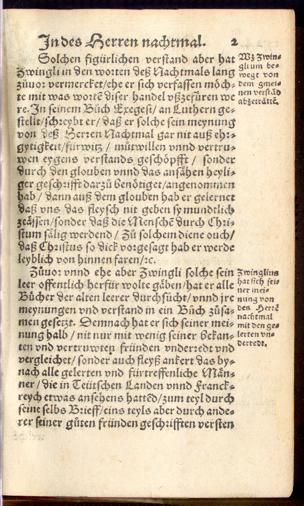 In des Herren nachtmal. 2
Solchen figürlichen verstand aber hat
Zwingli in den worten deß Nachtmals lang
zůuor vermercket/ehe er sich verfassen möch-
te mit was worte diser handel vßzefüren we
re. In seinem Bůch Exegesi/ an Luthern ge-
stellt/schreybt er/ daß er solche sein meynung
von deß Herren Nachtmal gar nit auß ehr-
gytigkeit/fürwitz/ můtwillen vnnd vertru-
wen eygens verstands geschöpfft/ sonder
durch den glouben vnnd das ansähen heyli-
ger geschrifft darzů benötiget/angenommen
hab/ dann auß dem glouben hab er gelernet
daß vns das fleysch nit geben sy mundtlich
zeässen/sonder daß die Mensche durch Chri-
stum sälig werdend/ Zů solchem diene ouch/
daß Christus so dick vorgesagt hab er werde
leyblich von hinnen faren/ꝛc.
Zůuor vnnd ehe aber Zwingli solche sein
leer offentlich herfür wolte gäben/hat er alle
Bücher der alten leerer durchsůcht/vnnd jre
meynungen vnd verstand in ein Bůch zůsa-
men gesetzt. Demnach hat er sich seiner mei-
nung halb/ nit nur mit wenig seiner bekan-
ten vnd vertruwten fründen vnderredt vnd
vergleichet/sonder auch fleyß ankert das by-
nach alle gelerten vnd fürtreffenliche Män-
ner/die in Teütschen Landen vnnd Franck-
reych etwas ansehens hatted/zum teyl durch
seine selbs Brieff/eins teyls aber durch ande-
rer seiner gůten fründen geschrifften versten
Wz Zwin-
gli um be-
wegt von
dem gmei-
nen verstäd
abzeträtte.
Zwinglius
hat sich sei
ner mei-
nung von
des Herrē
nachtmal
mit den ge-
lerten vn-
derredt.